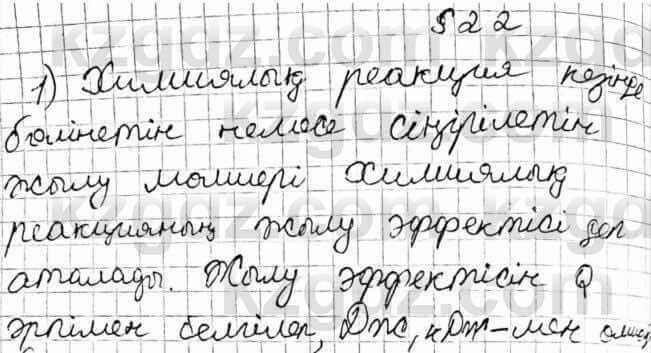 §22
1) Химиялық реакция кезінде
бөлінетін немесе сіңірілетін
жылу мөлшері химиялық
реакцияның жылу эффектісі деп
аталады. Жылу эффектісін Q
әрпімен белгілеп, Дж, кДж-мен